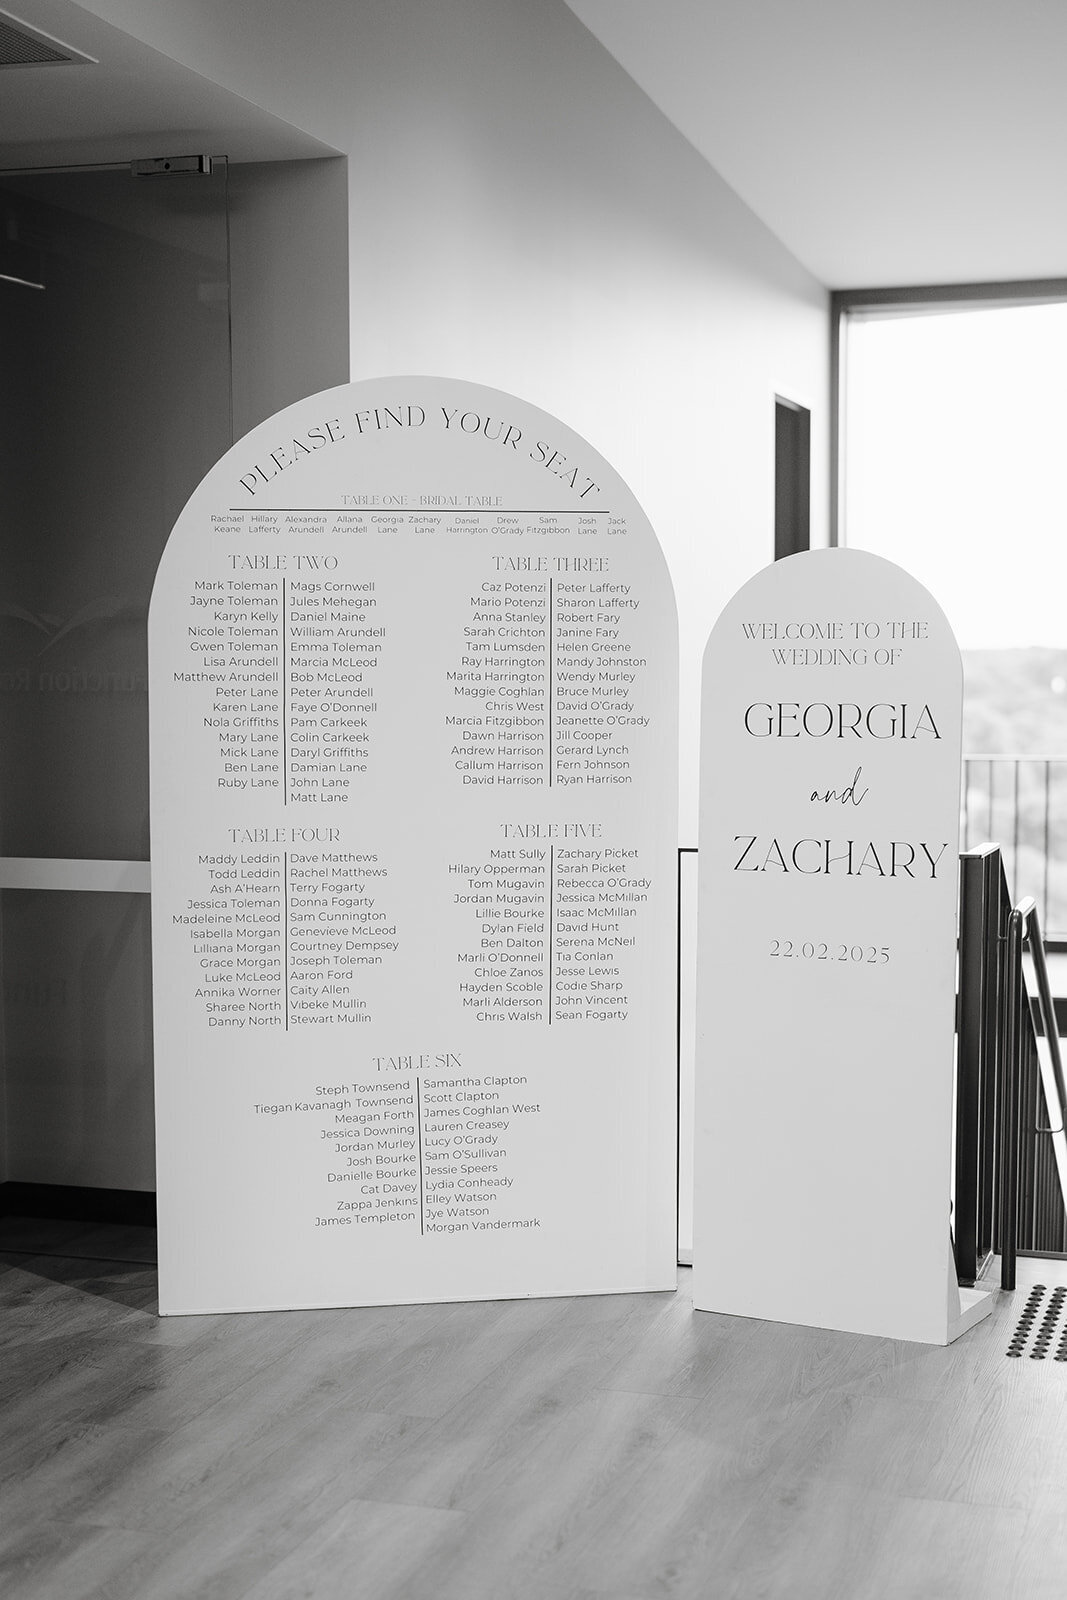 PLEASE FIND YOUR SEAT
TABLE ONE - BRIDAL TABLE
Rachael Hillary Alexandra Allana Georgia Zachary Daniel Drew Sam Josh Jack
Keane Lafferty Arundell Arundell Lane Lane Harrington O'Grady Fitzgibbon Lane Lane
TABLE TWO
Mark Toleman Mags Cornwell
Jayne Toleman Jules Mehegan
Karyn Kelly Daniel Maine
Nicole Toleman William Arundell
Gwen Toleman Emma Toleman
Lisa Arundell Marcia McLeod
Matthew Arundell Bob McLeod
Peter Lane Peter Arundell
Karen Lane Faye O'Donnell
Nola Griffiths Pam Carkeek
Mary Lane Colin Carkeek
Mick Lane Daryl Griffiths
Ben Lane Damian Lane
Ruby Lane John Lane
Matt Lane
TABLE THREE
Caz Potenzi Peter Lafferty
Mario Potenzi Sharon Lafferty
Anna Stanley Robert Fary
Sarah Crichton Janine Fary
Tam Lumsden Helen Greene
Ray Harrington Mandy Johnston
Marita Harrington Wendy Murley
Maggie Coghlan Bruce Murley
Chris West David O'Grady
Marcia Fitzgibbon Jeanette O'Grady
Dawn Harrison Jill Cooper
Andrew Harrison Gerard Lynch
Callum Harrison Fern Johnson
David Harrison Ryan Harrison
TABLE FOUR
Maddy Leddin Dave Matthews
Todd Leddin Rachel Matthews
Ash A'Hearn Terry Fogarty
Jessica Toleman Donna Fogarty
Madeleine McLeod Sam Cunnington
Isabella Morgan Genevieve McLeod
Lilliana Morgan Courtney Dempsey
Grace Morgan Joseph Toleman
Luke McLeod Aaron Ford
Annika Worner Caity Allen
Sharee North Vibeke Mullin
Danny North Stewart Mullin
TABLE FIVE
Matt Sully Zachary Picket
Hilary Opperman Sarah Picket
Tom Mugavin Rebecca O'Grady
Jordan Mugavin Jessica McMillan
Lillie Bourke Isaac McMillan
Dylan Field David Hunt
Ben Dalton Serena McNeil
Marli O'Donnell Tia Conlan
Chloe Zanos Jesse Lewis
Hayden Scoble Codie Sharp
Marli Alderson John Vincent
Chris Walsh Sean Fogarty
TABLE SIX
Steph Townsend Samantha Clapton
Tiegan Kavanagh Townsend Scott Clapton
Meagan Forth James Coghlan West
Jessica Downing Lauren Creasey
Jordan Murley Lucy O'Grady
Josh Bourke Sam O'Sullivan
Danielle Bourke Jessie Speers
Cat Davey Lydia Conheady
Zappa Jenkins Elley Watson
James Templeton Jye Watson
Morgan Vandermark
WELCOME TO THE
WEDDING OF
GEORGIA
and
ZACHARY
22.02.2025